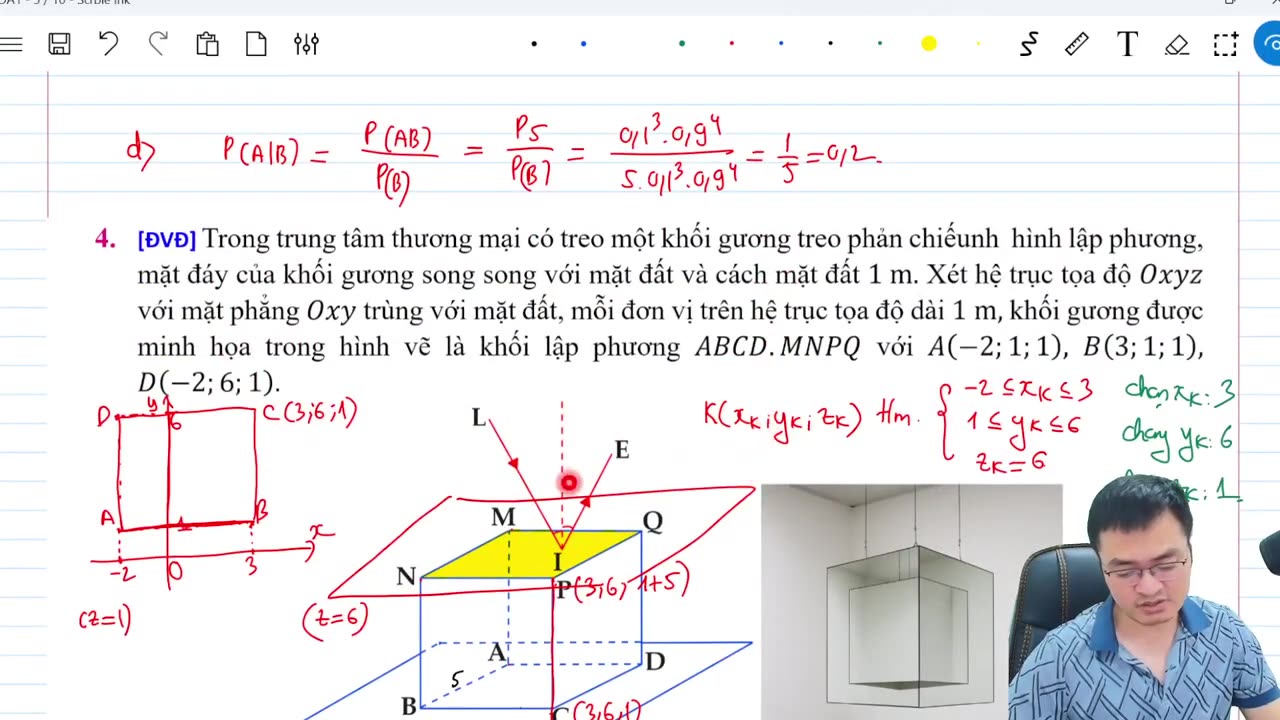 d) P(A|B) = P(AB)/P(B) = P5/P(B) = 0,1³.0,9⁴/5.0,1³.0,9⁴ = 1/5 = 0,2.
4. [ĐVĐ] Trong trung tâm thương mại có treo một khối gương treo phản chiếunh hình lập phương,
mặt đáy của khối gương song song với mặt đất và cách mặt đất 1 m. Xét hệ trục tọa độ Oxyz
với mặt phẳng Oxy trùng với mặt đất, mỗi đơn vị trên hệ trục tọa độ dài 1 m, khối gương được
minh họa trong hình vẽ là khối lập phương ABCD.MNPQ với A(−2; 1; 1), B(3; 1; 1),
D(−2; 6; 1).
D y 6 C(3;6;1)
A 1 B
x
-2 O 3
(z=1)
L
E
M Q
I
N P(3;6; 1+5)
(z=6)
A D
5
B C(3;6;1)
K(xK;yK;zK) Hm. { -2 ≤ xK ≤ 3
1 ≤ yK ≤ 6
zK = 6
chạy xK: 3
chạy yK: 6
K: 1